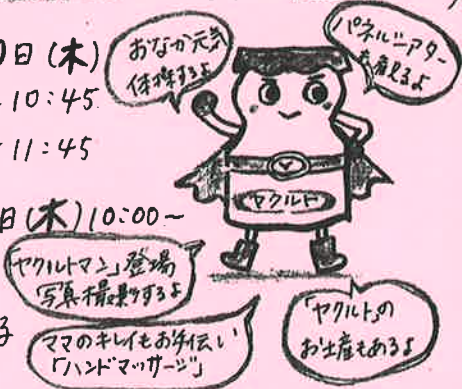 0日(木)
10:45
11:45
日(木)10:00~
おなか元気
体操するよ
パネルシアター
も産えるよ
ヤクルト
「ヤクルトマン」登場
写真撮影するよ
ママのキレイもお手伝い
「ハンドマッサージ」
「ヤクルト」の
お土産もあるよ